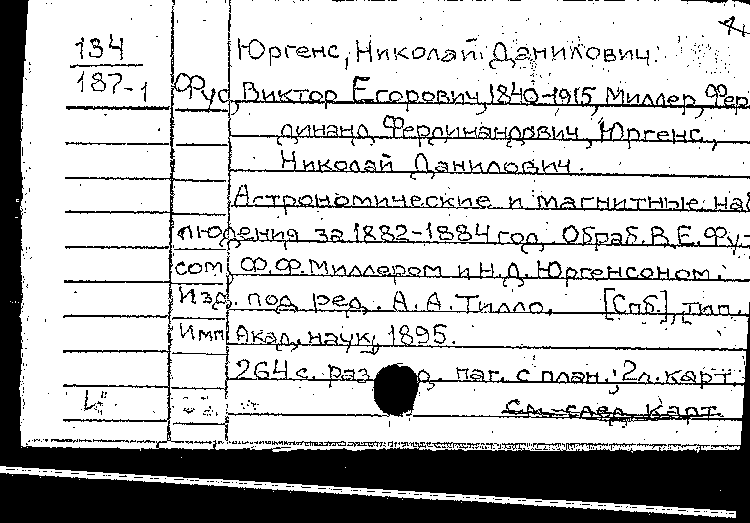 134
Юргенс, Николай Данилович.
187-1
Фус, Виктор Егорович, 1840-1915, Миллер, Фер
динанд Фердинандович, Юргенс,
Николай Данилович.
Астрономические и магнитные наб
людения за 1882-1884 год. Обраб. В.Е. Фус
сом, Ф.Ф. Миллером и Н.Д. Юргенсоном.
Изд. под ред. А.А. Тилло. [Спб], тип.
Имп Акад. наук, 1895.
264 с. раз паг. с план.; 2 л. карт.
См. след. карт.